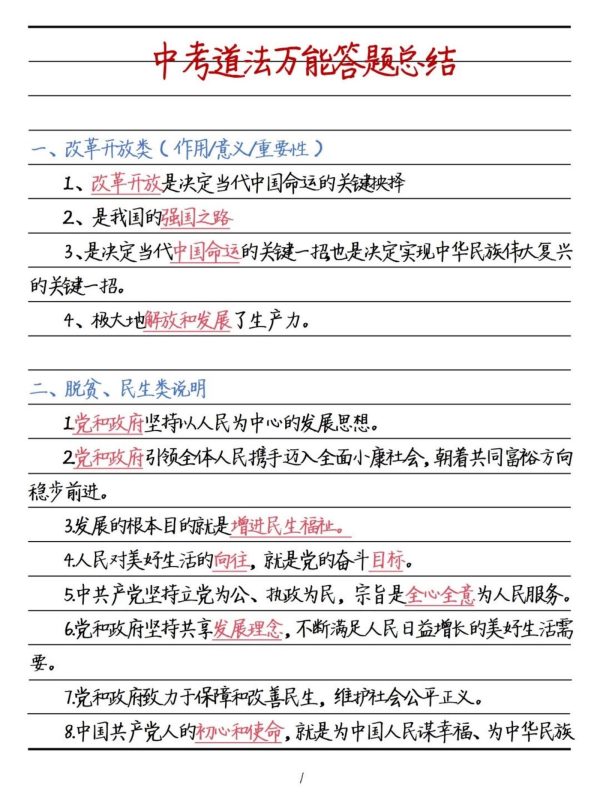 中考道法万能答题总结
一、改革开放类（作用/意义/重要性）
1、改革开放是决定当代中国命运的关键抉择
2、是我国的强国之路
3、是决定当代中国命运的关键一招,也是决定实现中华民族伟大复兴
的关键一招。
4、极大地解放和发展了生产力。
二、脱贫、民生类说明
1.党和政府坚持以人民为中心的发展思想。
2.党和政府引领全体人民携手迈入全面小康社会,朝着共同富裕方向
稳步前进。
3.发展的根本目的就是增进民生福祉。
4.人民对美好生活的向往，就是党的奋斗目标。
5.中共产党坚持立党为公、执政为民，宗旨是全心全意为人民服务。
6.党和政府坚持共享发展理念，不断满足人民日益增长的美好生活需
要。
7.党和政府致力于保障和改善民生，维护社会公平正义。
8.中国共产党人的初心和使命，就是为中国人民谋幸福、为中华民族
/